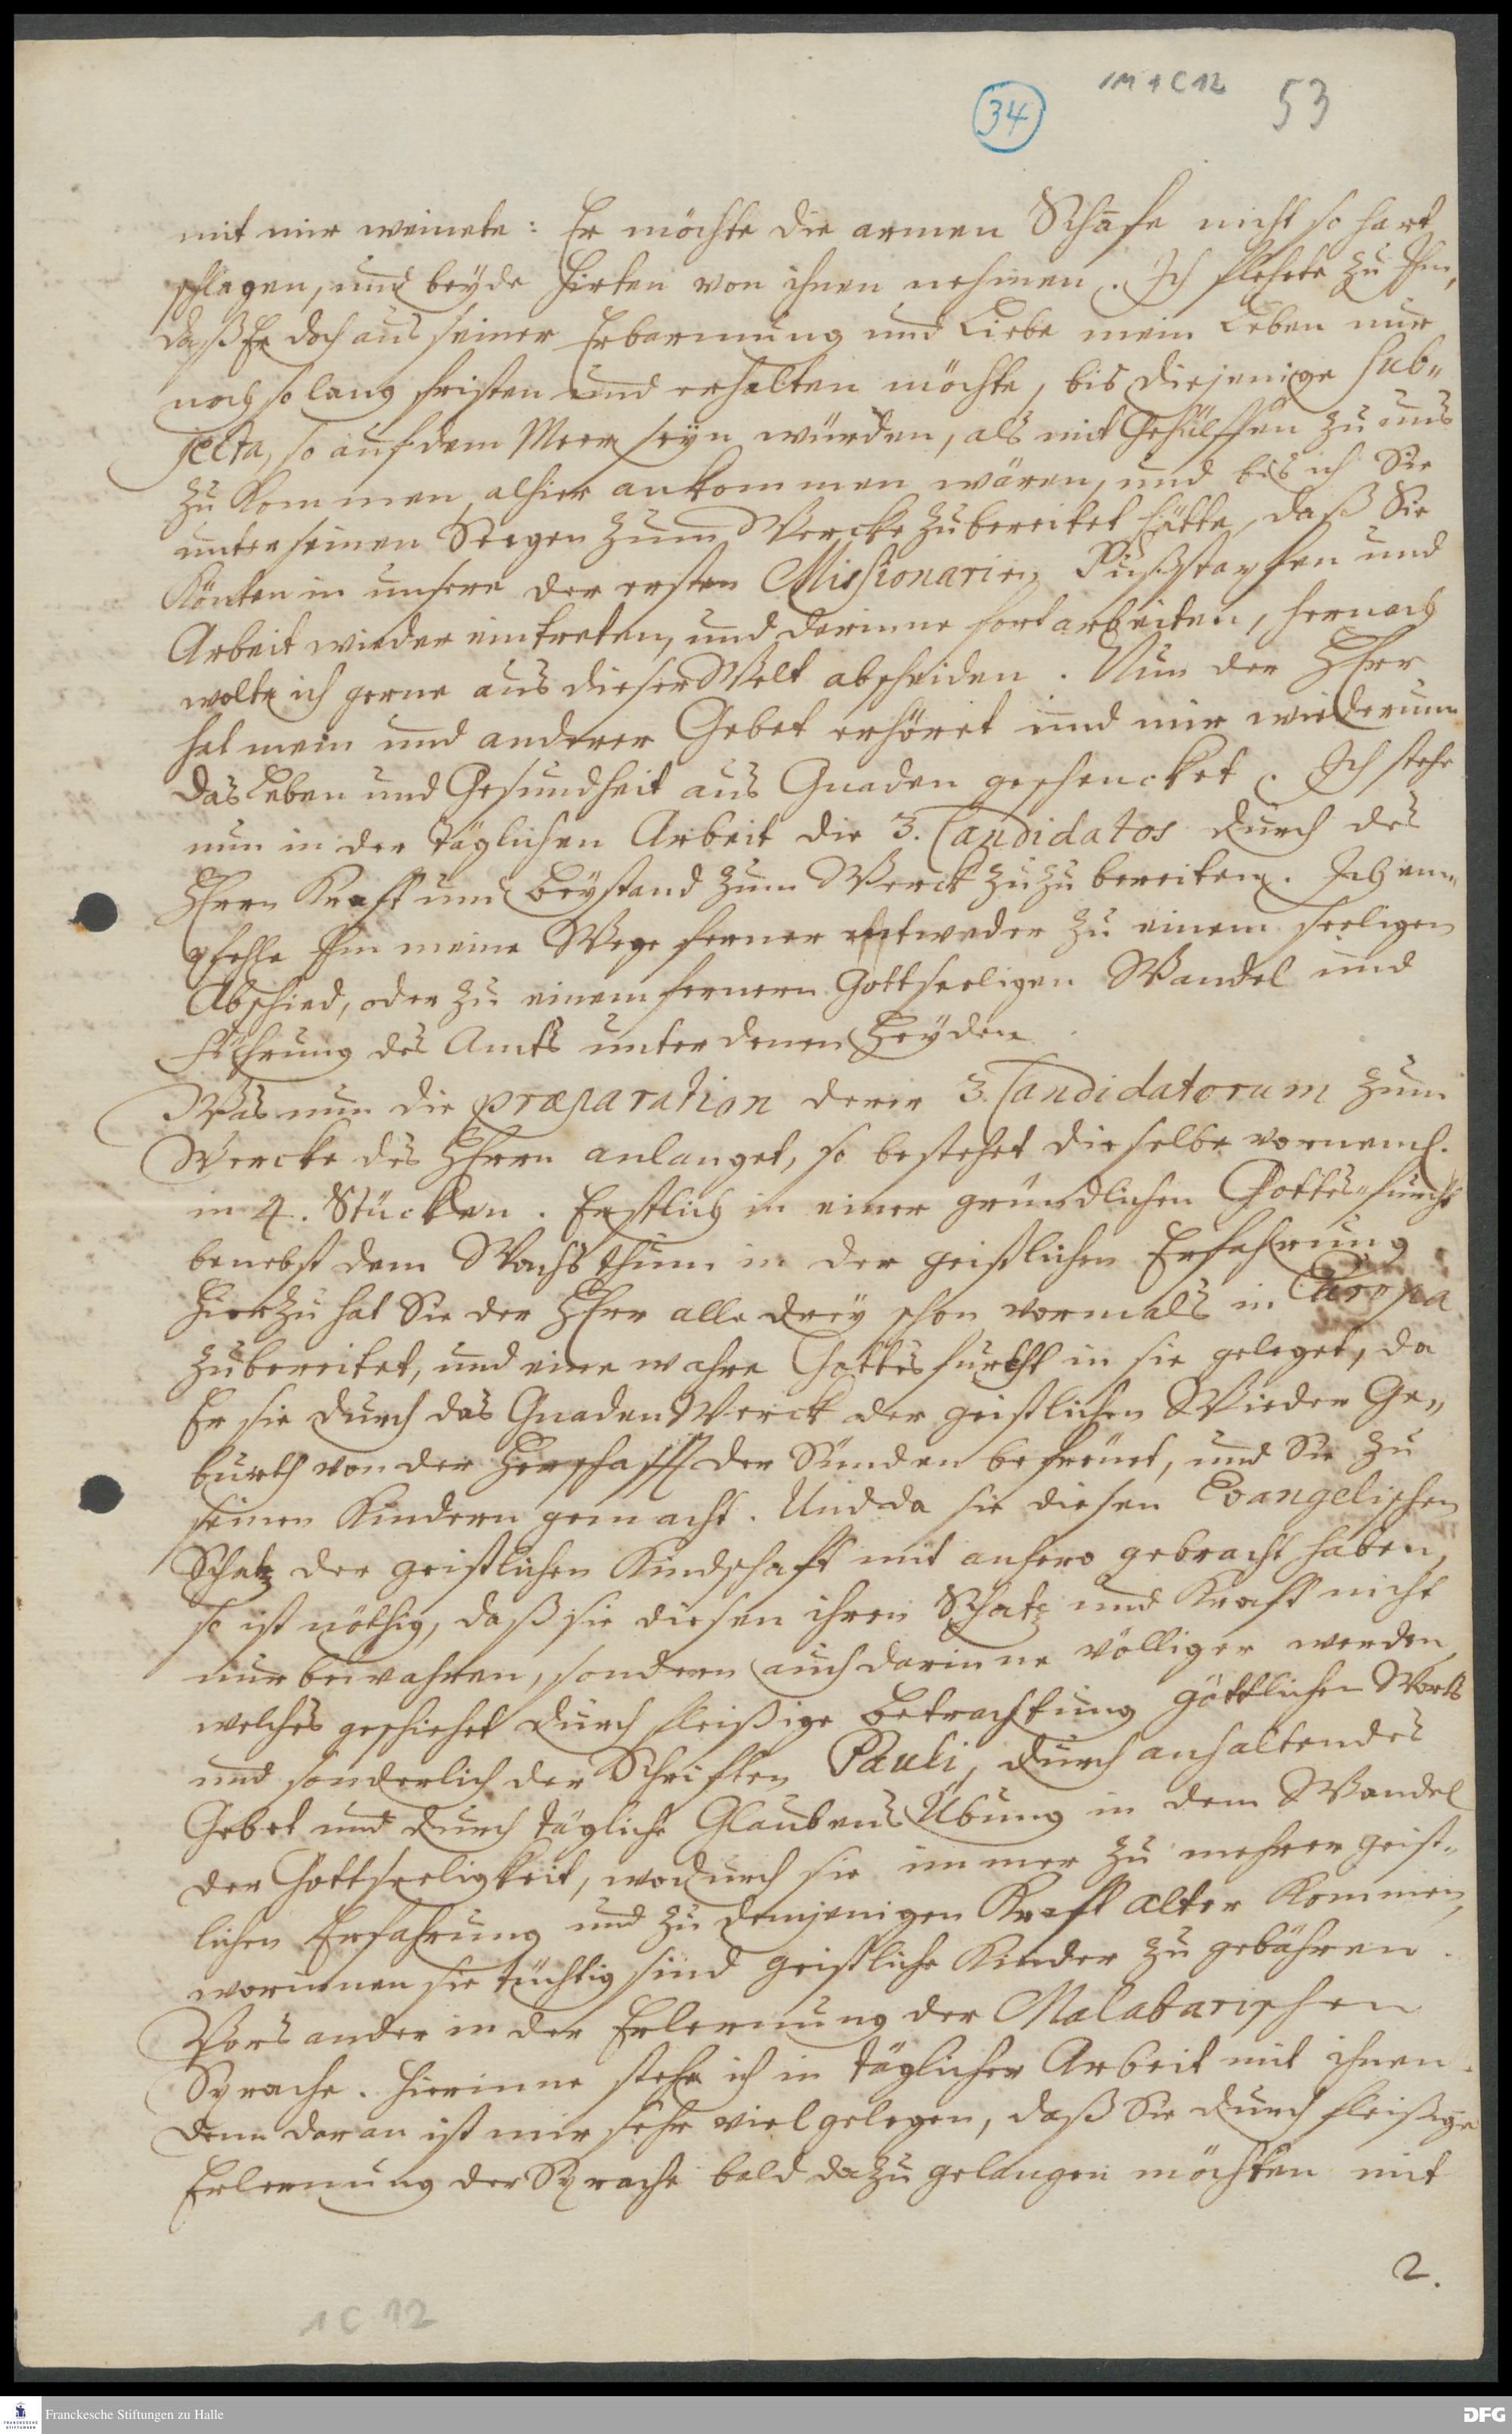 34
1M 1 C 12
53
mit mir weinete: Er möchte die armen Schafe nicht so hart
schlagen, und beyde Hirten von ihnen nehmen. Ich flehete zu Ihm,
daß Er doch aus seiner Erbarmung und Liebe mein Leben nur
noch so lang fristen und erhalten möchte, bis diejenige Sub„
jecta, so auf dem Meer seyn würden, als mit Gehülffen zu uns
zu kommen, alhier ankommen wären, und bis ich Sie
unter seinen Seegen zum Wercke zubereitet hätte, daß Sie
könten in unsere der ersten Missionarien Fußstapfen und
Arbeit wieder eintreten, und darinne fortarbeiten, hernach
wolte ich gerne aus dieser Welt abscheiden. Nun der HErr
hat mein und anderer Gebet erhöret und mir wiederum
das Leben und Gesundheit aus Gnaden geschencket. Ich stehe
nun in der täglichen Arbeit die 3. Candidatos durch des
HErrn Krafft und Beystand zum Werck zuzubereiten. Ich em„
pfehle Ihm meine Wege ferner entweder zu einem seeligen
Abschied, oder zu einem fernern Gottseeligen Wandel und
Führung des Amts unter denen Heyden
Was nun die præparation derer 3. Candidatorum zum
Wercke des HErrn anlanget, so bestehet dieselbe vorneml.
in 4. Stücken. Erstlich in einer gründlichen Gottes„furcht
benebst dem Wachsthum in der geistlichen Erfahrung
Hierzu hat Sie der HErr alle drey schon vormals in Europa
zubereitet, und eine wahre Gottesfurcht in sie geleget, da
Er sie durch das Gnaden Werck der geistlichen Wieder Ge„
burth von der Herschafft der Sünden befreuet, und Sie zu
seinen Kindern gemacht. Und da sie diesen Evangelischen
Schatz der geistlichen Kindschafft mit anhero gebracht haben,
so ist nöthig, daß sie diesen ihren Schatz und Krafft nicht
nur bewahren, sondern auch darinne völliger werden,
welches geschiehet durch fleißige Betrachtung göttlichen Worts
und sonderlich der Schrifften Pauli, durch anhaltendes
Gebet und durch tägliche Glaubens Übung in dem Wandel
der Gottseeligkeit, wodurch sie immer zu mehrer geist„
lichen Erfahrung und zu demjenigen Krafft alter kommen,
worinnen sie tüchtig sind geistliche Kinder zu gebähren.
Vors ander in der Erlernung der Malabarischen
Sprache. Hierinne stehe ich in täglicher Arbeit mit ihnen.
denn daran ist mir sehr viel gelegen, daß Sie durch fleißige
Erlernung der Sprache bald dazu gelangen möchten mit
2.
1 C 12
Franckesche Stiftungen zu Halle
DFG